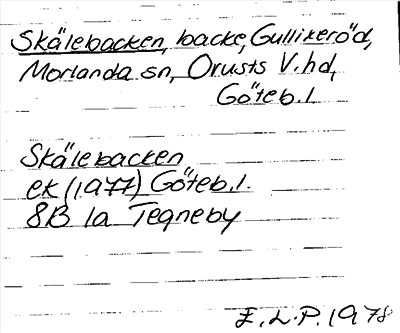 Skälebacken, backe, Gullkeröd,
Morlanda sn, Orusts V. hd,
Göteb. l.
Skälebacken
ek (1977) Göteb. l.
8B 1a Tegneby
E.L.P. 1978